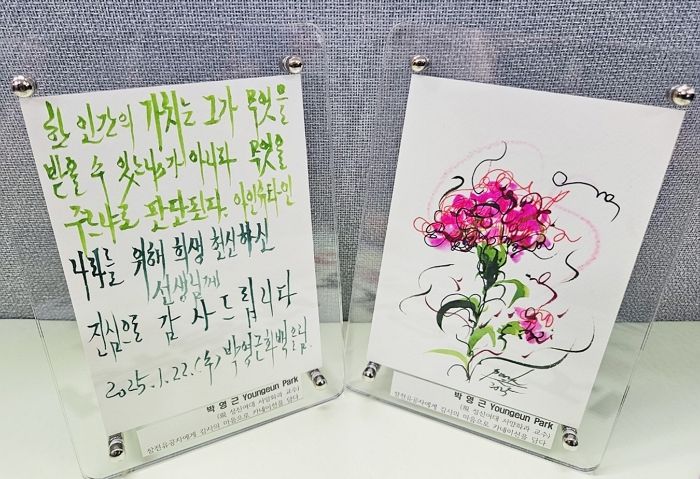 한 인간의 가치는 그가 무엇을
받을 수 있느냐가 아니라 무엇을
주느냐로 판단된다. 아인슈타인
나라를 위해 희생 헌신하신
선생님께
진심으로 감사드립니다
2025.1.22.(수) 박영근화백 올림.
박영근 Youngeun Park
(現 성신여대 서양화과 교수)
참전유공자에게 감사의 마음으로 카네이션을 담다
2025
박영근 Youngeun Park
(現 성신여대 서양화과 교수)
참전유공자에게 감사의 마음으로 카네이션을 담다